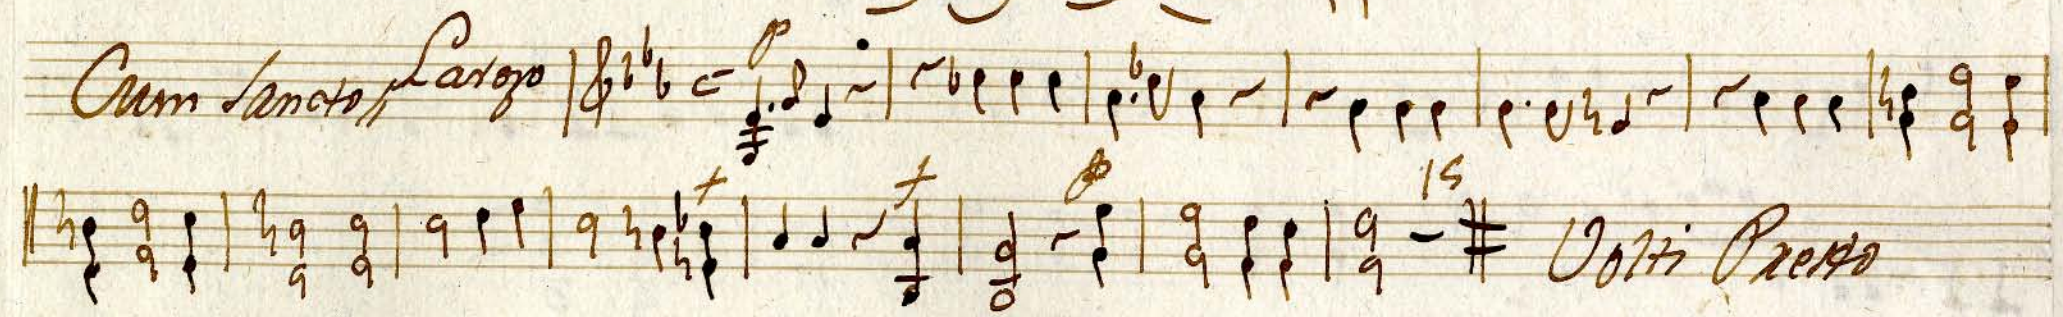 Cum Sancto // Largo p
f p f 15 Volti Presto